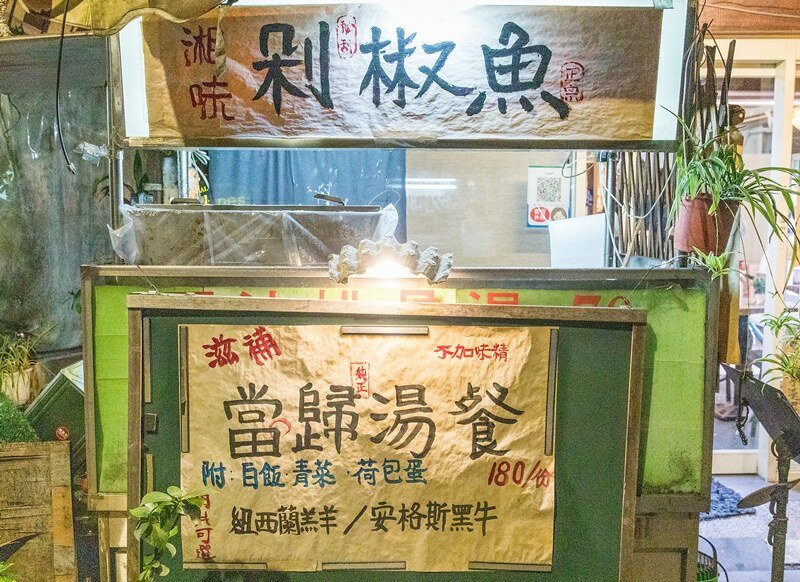 湘味
剁椒魚
滋補
不加味精
純正
當歸湯餐
附·白飯·青菜·荷包蛋
180/份
紐西蘭羔羊/安格斯黑牛